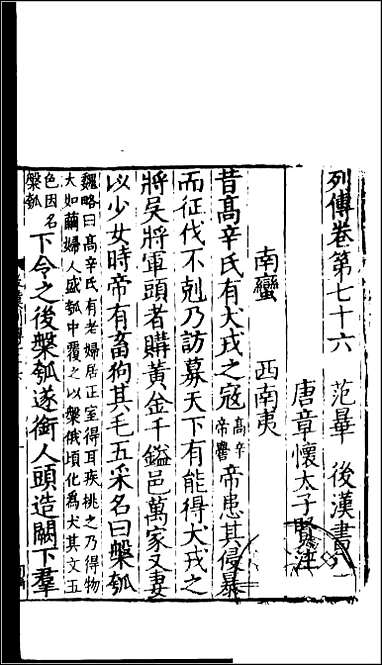 列傳卷第七十六 范曄 後漢書
唐章懷太子賢注
南蠻 西南夷
昔高辛氏有犬戎之寇高辛帝嚳帝患其侵暴
而征伐不剋乃訪募天下有能得犬戎之
將吳將軍頭者購黃金千鎰邑萬家又妻
以少女時帝有畜狗其毛五采名曰槃瓠
魏略曰高辛氏有老婦居正室得耳疾挑之乃得物
大如繭婦人盛瓠中覆之以槃俄頃化為犬其文五
色因名槃瓠下令之後槃瓠遂銜人頭造闕下羣